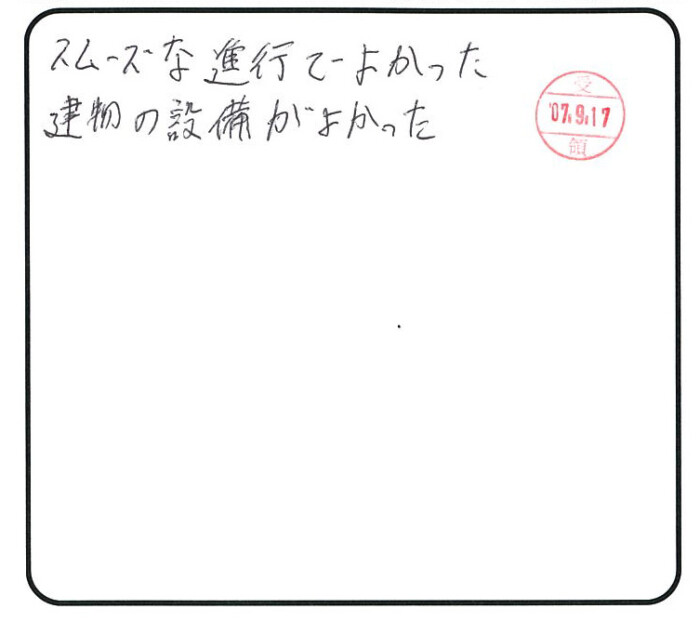 スムーズな進行でよかった
建物の設備がよかった
受
'07.9.17
領